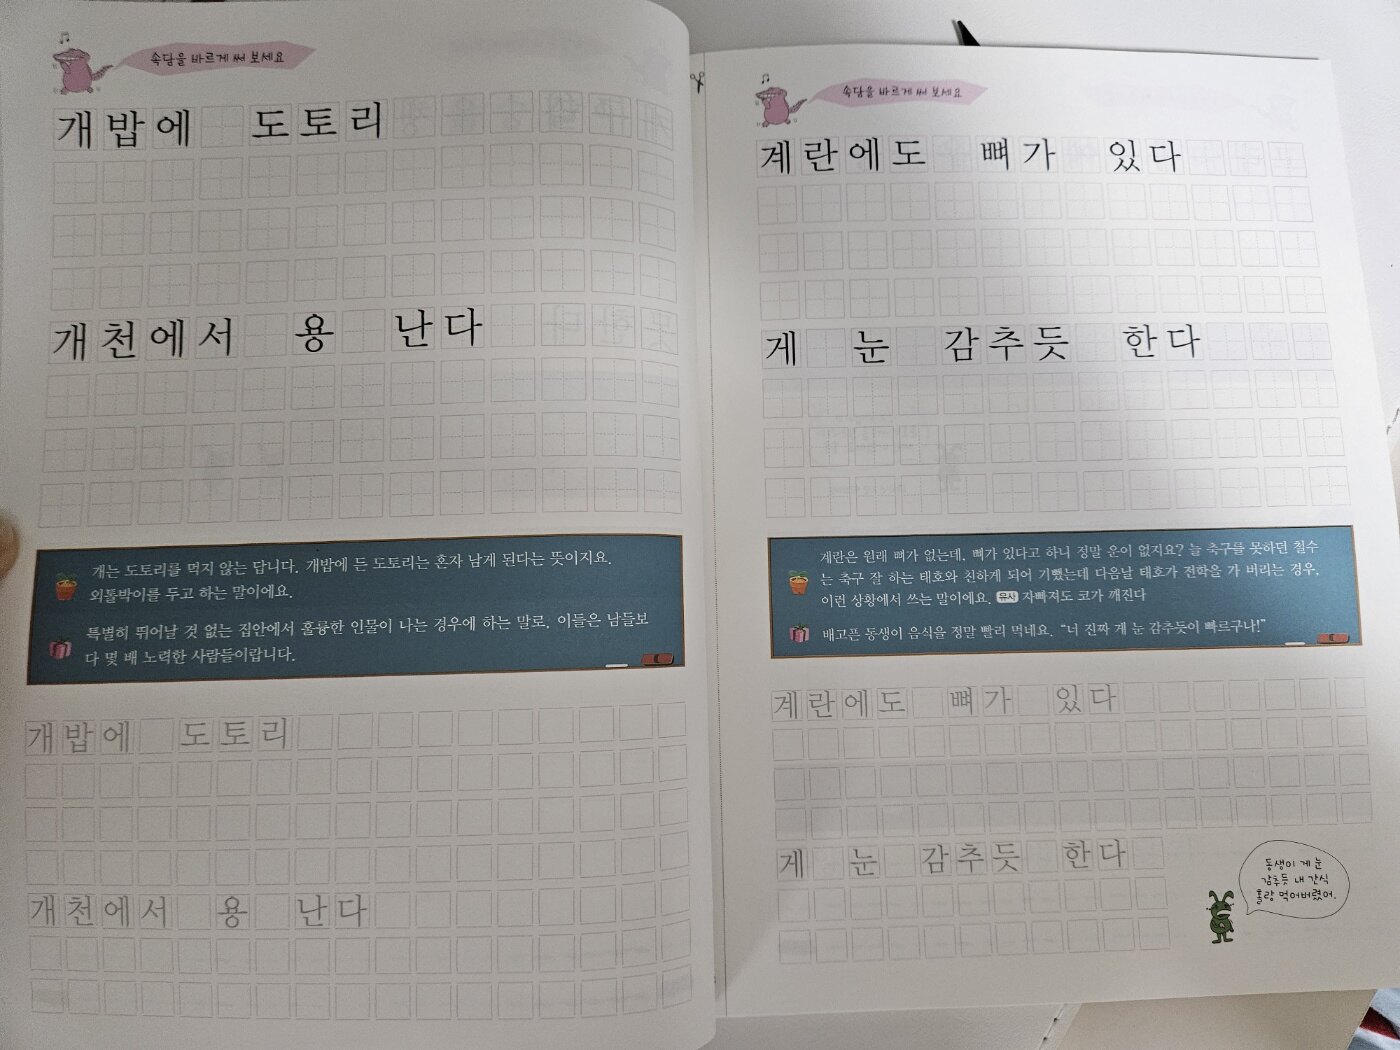 속담을 바르게 써 보세요
개밥에 도토리
개천에서 용 난다
개는 도토리를 먹지 않는 답니다. 개밥에 든 도토리는 혼자 남게 된다는 뜻이지요.
외톨박이를 두고 하는 말이에요.
특별히 뛰어날 것 없는 집안에서 훌륭한 인물이 나는 경우에 하는 말로, 이들은 남들보
다 몇 배 노력한 사람들이랍니다.
개밥에 도토리
개천에서 용 난다
속담을 바르게 써 보세요
계란에도 뼈가 있다
게 눈 감추듯 한다
계란은 원래 뼈가 없는데, 뼈가 있다고 하니 정말 운이 없지요? 늘 축구를 못하던 철수
는 축구 잘 하는 태호와 친하게 되어 기뻤는데 다음날 태호가 전학을 가 버리는 경우,
이런 상황에서 쓰는 말이에요. 유사 자빠져도 코가 깨진다
배고픈 동생이 음식을 정말 빨리 먹네요. “너 진짜 게 눈 감추듯이 빠르구나!”
계란에도 뼈가 있다
게 눈 감추듯 한다
동생이 게 눈
감추듯 내 간식
홀랑 먹어버렸어.